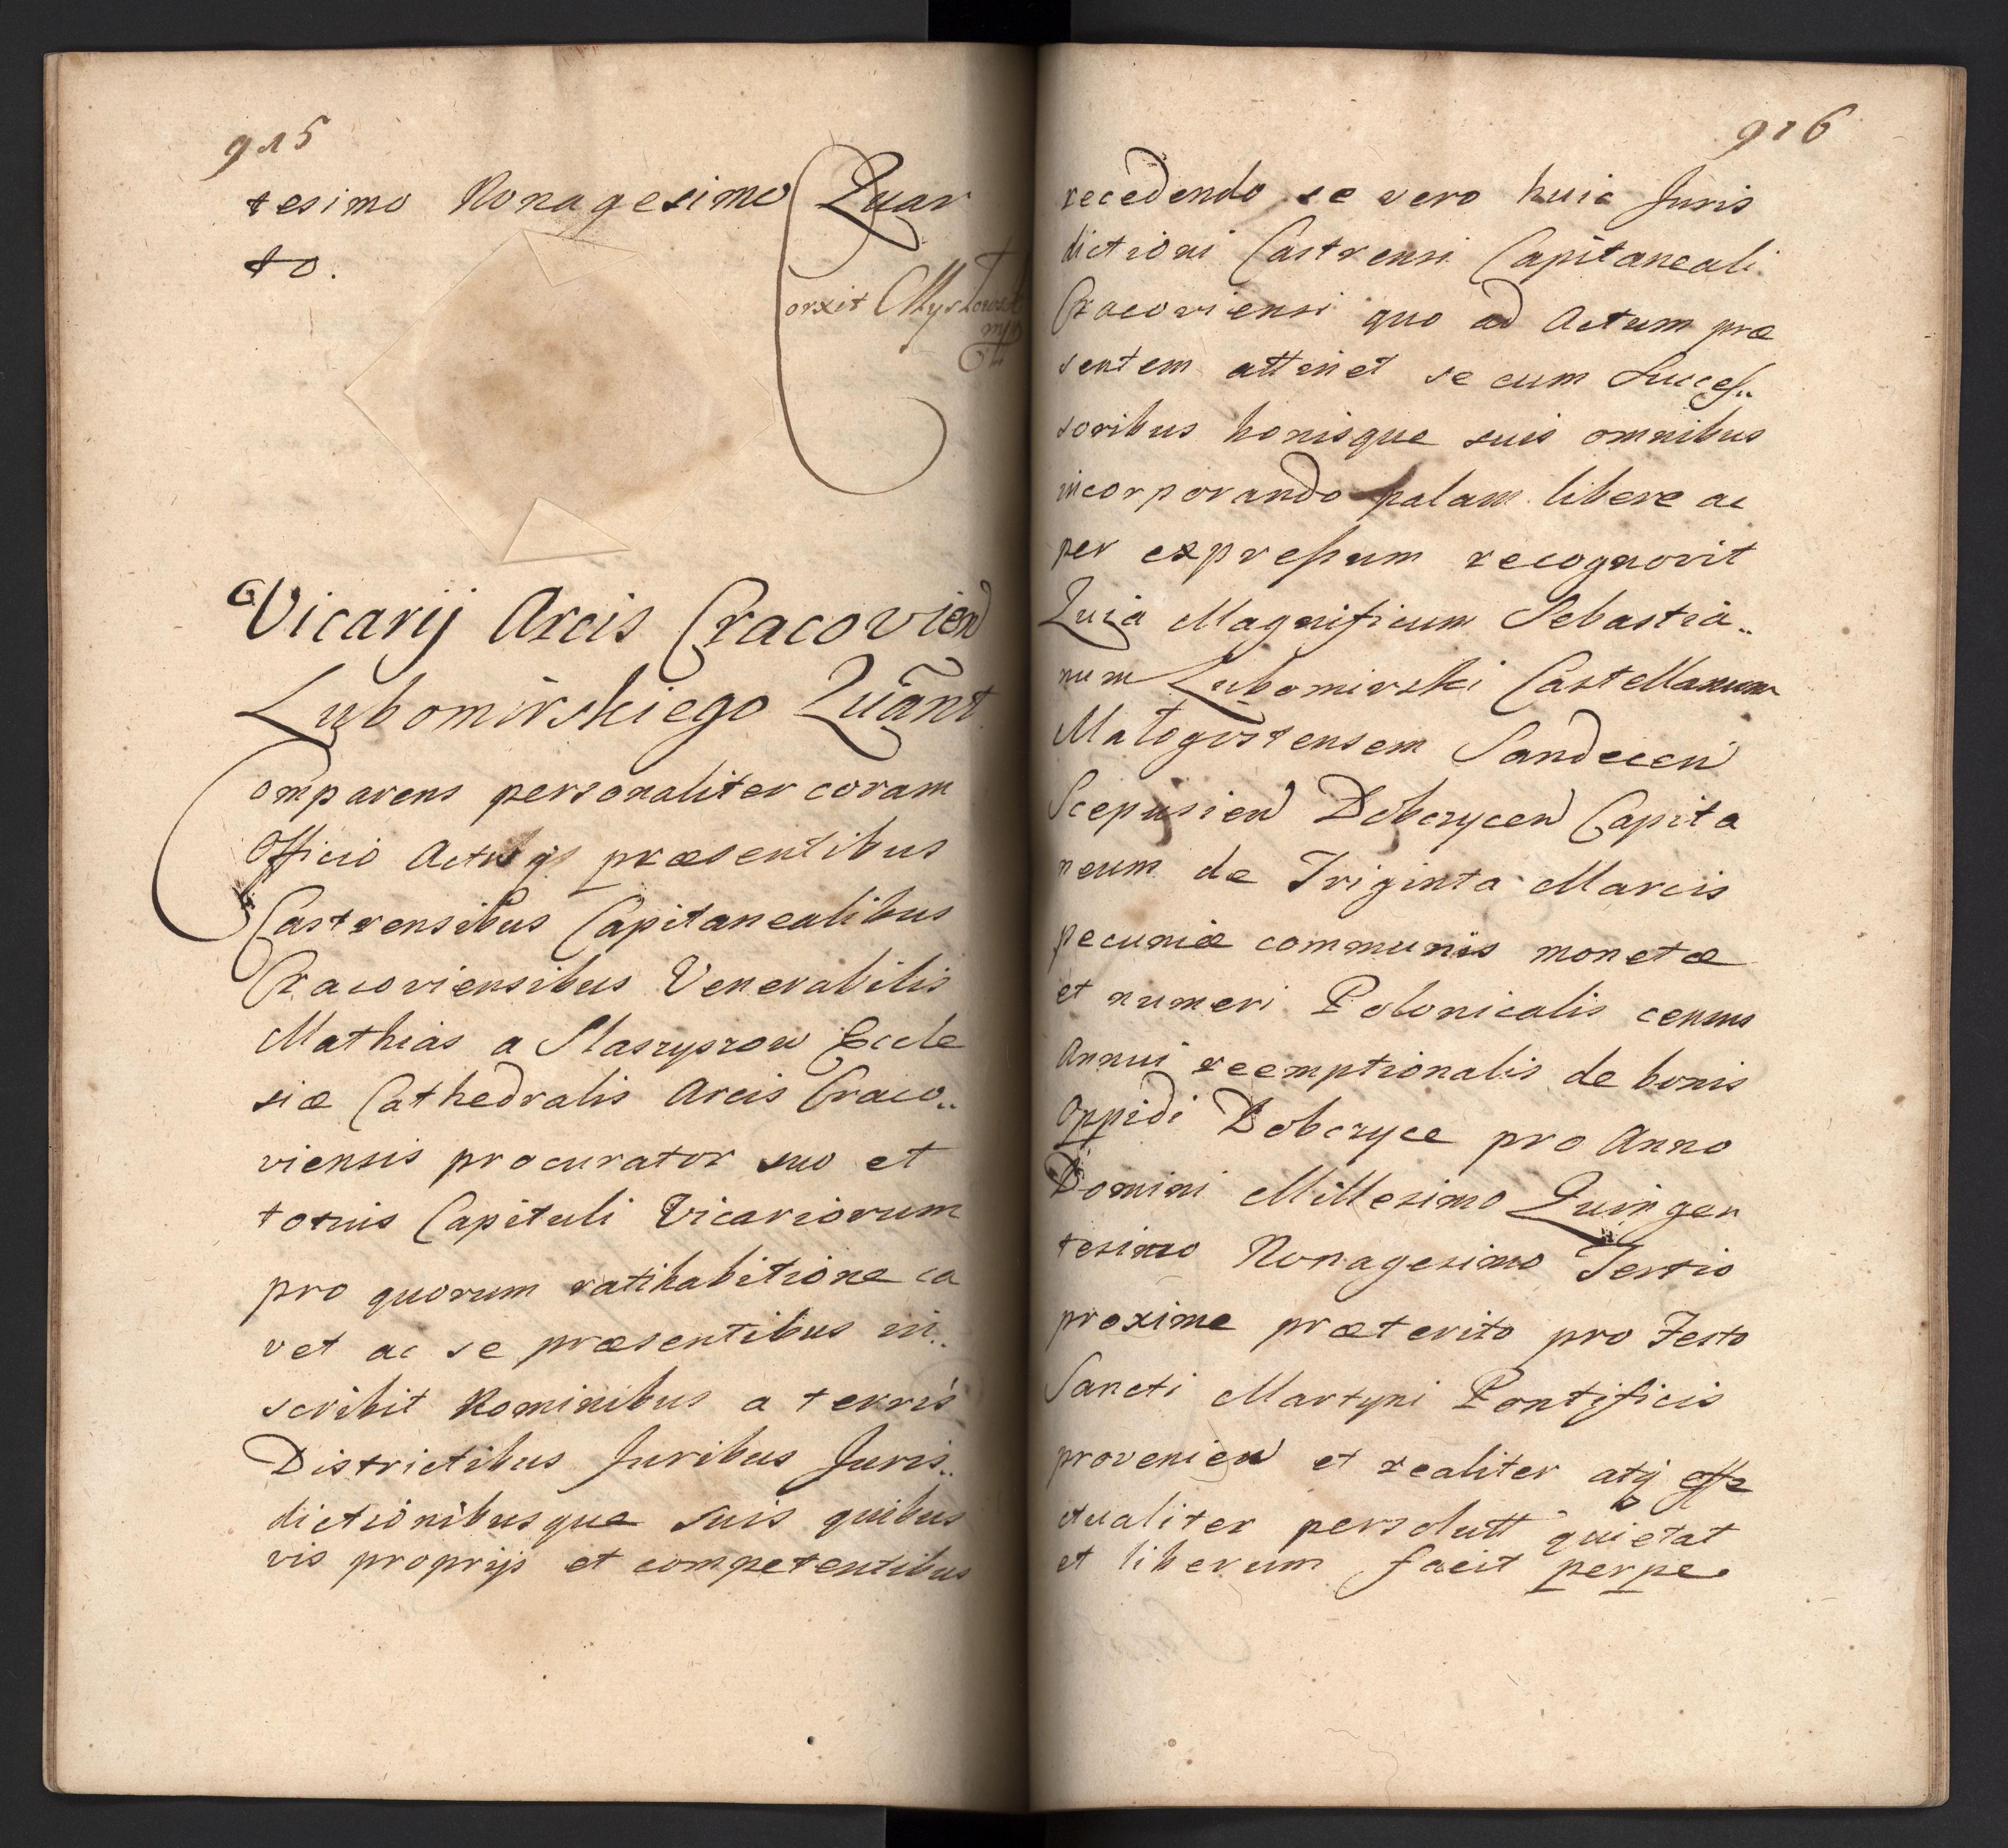 915
tesimo Nonagesimo Quar
to.
orxit Myszkowsk
mp
Vicarij Arcis Cracovien
Lubomirskiego Quānt
Comparens personaliter coram
Officio Actisqs praesentibus
Castrensibus Capitanealibus
Cracoviensibus Venerabilis
Mathias a Staszyszow Eccle
siæ Cathedralis Arcis Craco..
viensis procurator suo et
totius Capituli Vicariorum
pro quorum ratihabitione ca
vet ac se præsentibus in..
scribit Nominibus a terris
Districtibus Juribus Juris..
dictionibusque suis quibus
vis proprijs et competentibus
916
recedendo se vero huic Juris
dictioni Castrensi Capitaneali
Cracoviensi quo ad Actum præ
sentem attinet se cum Succes..
soribus bonisque suis omnibus
incorporando palam libere ac
per expressum recognovit
Quia Magnificum Sebastia..
num Lubomirski Castellanum
Małogostensem Sandecen
Scepusien Dobczycen Capita
neum de Triginta Marcis
pecuniæ communis monetæ
et numeri Polonicalis census
Annui reemptionalis de bonis
Oppidi Dobczyce pro Anno
Domini Millesimo Quingen
tesimo Nonagesimo Tertio
proxime præterito pro Festo
Sancti Martyni Pontificis
provenien et realiter atq effe
ctualiter persolutt quietat
et liberum facit perpe